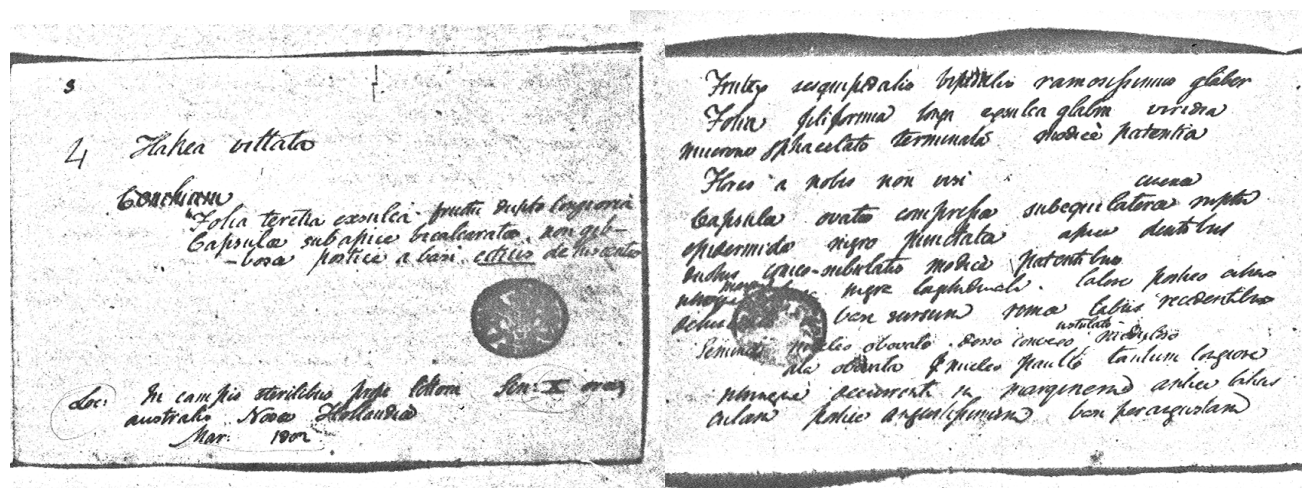 3
4 Hakea vittata
Conchium
Folia teretia exsulca fructu duplo longiora
Capsulae subapice bicalcaratae non gib-
-bosae postice a basi dehiscentes
Loc: In campis sterilibus prope littora
australia Novae Hollandiae
Mar: 1802
Frutex sesquipedalis bipedalis ramosissimus glaber
Folia filiformia longa exsulca glabra viridia
mucrone sphacelato terminata modicè patentia
Flores a nobis non visi
Capsula ovata compressa subequilatera rupta
epidermide nigro punctata apice dentibus
duobus conico-subulatis modicè patentibus
nigra longitudinali. postico
basi sursum labiis recedentibus
Semina nucleo obovato dorso convexo ustulato
ala obovata nucleo paullo tantum longiore
utrinque occurrente in marginem antice
postice angustissimum basi perangustam